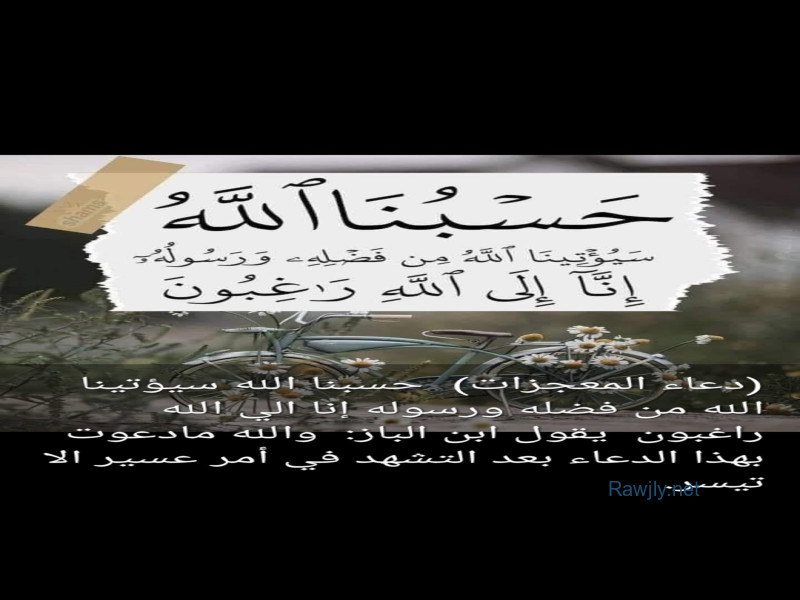 sham
حَسْبُنَا ٱللَّهُ
سَيُؤْتِينَا ٱللَّهُ مِن فَضْلِهِۦ وَرَسُولُهُۥٓ
إِنَّآ إِلَى ٱللَّهِ رَٰغِبُونَ
(دعاء المعجزات) حسبنا الله سيؤتينا
الله من فضله ورسوله إنا الي الله
راغبون يقول ابن الباز: والله مادعوت
بهذا الدعاء بعد التشهد في أمر عسير الا
تيسر.
Rawjly.net